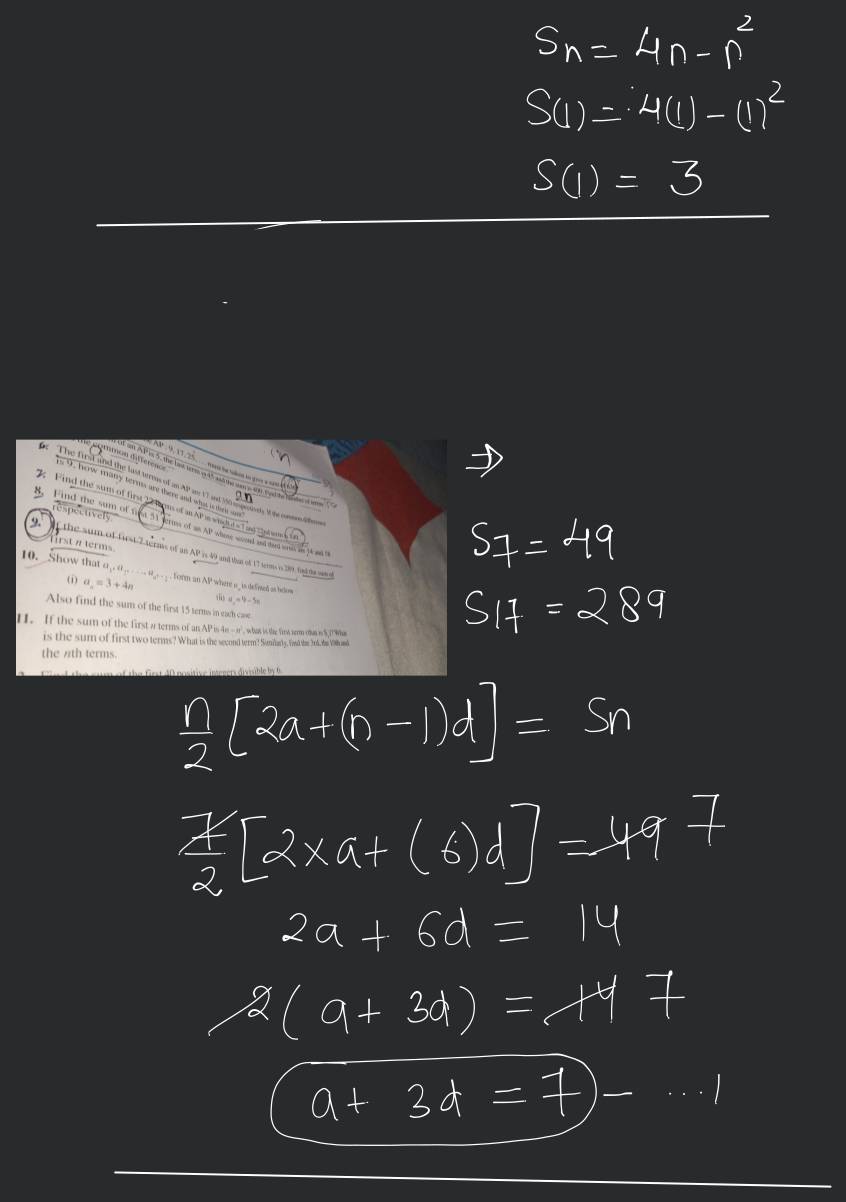 Sn = 4n - n²
S(1) = 4(1) - (1)²
S(1) = 3
AP : 9, 17, 25, ... must be taken to give a sum of 636?
of an AP is 5, the last term is 45 and the sum is 400. Find the number of terms
the common difference.
6. The first and the last terms of an AP are 17 and 350 respectively. If the common difference
is 9, how many terms are there and what is their sum?
7. Find the sum of first 22 terms of an AP in which d = 7 and 22nd term is 149.
8. Find the sum of first 51 terms of an AP whose second and third terms are 14 and 18
respectively.
9. If the sum of first 7 terms of an AP is 49 and that of 17 terms is 289, find the sum of
first n terms.
10. Show that a₁, a₂, . . ., aₙ, . . . form an AP where aₙ is defined as below
(i) aₙ = 3 + 4n (ii) aₙ = 9 – 5n
Also find the sum of the first 15 terms in each case.
11. If the sum of the first n terms of an AP is 4n – n², what is the first term (that is S₁)? What
is the sum of first two terms? What is the second term? Similarly, find the 3rd, the 10th and
the nth terms.
the sum of the first 40 positive integers divisible by 6.
⇒
S7 = 49
S17 = 289
n/2 [2a + (n - 1)d] = Sn
7/2 [2 × a + (6)d] = 49 7
2a + 6d = 14
2(a + 3d) = 14 7
a + 3d = 7 - ...1